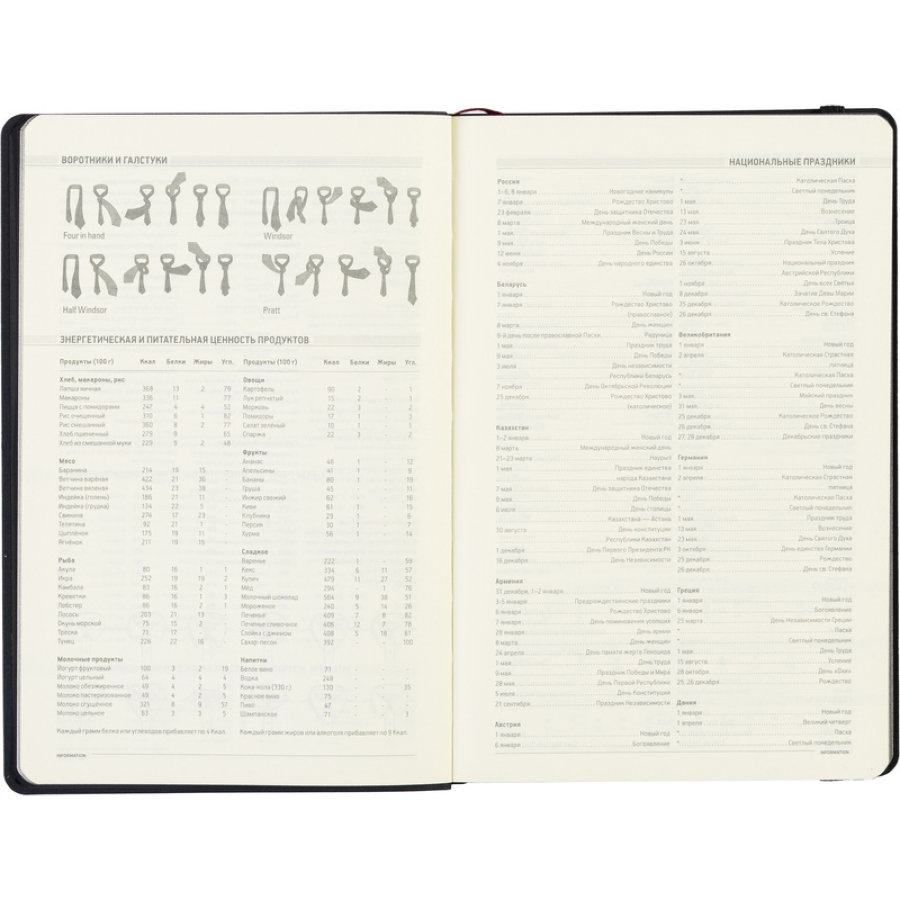 ВОРОТНИКИ И ГАЛСТУКИ
Four in hand
Windsor
Half Windsor
Pratt
ЭНЕРГЕТИЧЕСКАЯ И ПИТАТЕЛЬНАЯ ЦЕННОСТЬ ПРОДУКТОВ
Продукты (100 г) Ккал Белки Жиры Угл.
Хлеб, макароны, рис
Лапша яичная 368 13 2 79
Макароны 336 11 - 77
Пицца с помидорами 247 4 4 52
Рис очищенный 310 6 1 82
Рис смешанный 360 8 2 77
Хлеб пшеничный 279 9 65
Хлеб из смешанной муки 229 9 2 48
Мясо
Баранина 214 19 15 -
Ветчина варёная 422 21 36 -
Ветчина вяленая 434 23 38 -
Индейка (голень) 186 21 11 -
Индейка (грудка) 134 22 5 -
Свинина 274 17 23 -
Телятина 92 21 1 -
Цыплёнок 175 19 11 -
Ягнёнок 211 19 15 -
Рыба
Акула 80 16 1 1
Икра 252 19 19 2
Камбала 83 16 2 1
Креветки 86 16 1 3
Лобстер 86 16 2 1
Лосось 203 21 13 -
Окунь морской 75 15 2 -
Треска 71 17 - -
Тунец 226 22 16 -
Молочные продукты
Йогурт фруктовый 100 3 2 19
Йогурт цельный 64 4 4 4
Молоко обезжиренное 49 4 2 5
Молоко пастеризованное 49 4 2 5
Молоко сгущённое 321 8 9 57
Молоко цельное 63 3 3 5
Каждый грамм белка или углеводов прибавляет по 4 Ккал.
Продукты (100 г) Ккал Белки Жиры Угл.
Овощи
Картофель 90 2 - 1
Лук репчатый 15 2 - 1
Морковь 22 3 - 2
Помидоры 17 1 - 3
Салат зелёный 10 1 - 1
Спаржа 22 3 - 2
Фрукты
Ананас 46 1 - 12
Апельсины 41 1 - 9
Бананы 80 1 - 19
Груша 45 - 11
Инжир свежий 62 - 16
Киви 61 1 - 15
Клубника 29 1 - 6
Персик 30 1 - 7
Хурма 56 1 - 14
Сладкое
Варенье 222 1 - 59
Кекс 334 6 11 57
Кулич 479 11 27 52
Мёд 294 - 1 76
Молочный шоколад 564 9 38 51
Мороженое 240 5 14 26
Печенье 409 7 8 82
Печенье сливочное 408 12 7 78
Слойка с джемом 408 5 18 61
Сахар-песок 392 - - 100
Напитки
Белое вино 71 - - -
Водка 248 - - -
Кока-кола (330 г) 130 - - 35
Красное вино 75 - - -
Пиво 47 - - -
Шампанское 71 - - 3
Каждый грамм жиров или алкоголя прибавляет по 9 Ккал.
INFORMATION
НАЦИОНАЛЬНЫЕ ПРАЗДНИКИ
Россия
1-6, 8 января Новогодние каникулы
7 января Рождество Христово
23 февраля День защитника Отечества
8 марта Международный женский день
1 мая Праздник Весны и Труда
9 мая День Победы
12 июня День России
4 ноября День народного единства
Беларусь
1 января Новый год
7 января Рождество Христово
(православное)
8 марта День женщин
9-й день после православной Пасхи Радуница
1 мая Праздник труда
9 мая День Победы
3 июля День независимости
Республики Беларусь
7 ноября День Октябрьской Революции
25 декабря Рождество Христово
(католическое)
Казахстан
1-2 января Новый год
8 марта Международный женский день
21-23 марта Наурыз
1 мая Праздник единства
народа Казахстана
7 мая День защитника Отечества
9 мая День Победы
6 июля День столицы
Казахстана — Астана
30 августа День конституции
Республики Казахстан
1 декабря День Первого Президента РК
16 декабря День Независимости
Армения
31 декабря, 1-2 января Новый год
3-5 января Предрождественские праздники
6 января Рождество Христово
7 января День поминовения усопших
28 января День армии
8 марта День женщин
24 апреля День памяти жертв Геноцида
1 мая День труда
9 мая Праздник Победы и Мира
28 мая День Первой Республики
5 июля День Конституции
21 сентября Праздник Независимости
Австрия
1 января Новый год
6 января Богоявление
* Католическая Пасха
* Светлый понедельник
1 мая День Труда
13 мая Вознесение
23 мая Троица
24 мая День Святого Духа
3 июня Праздник Тела Христова
15 августа Успение
26 октября Национальный праздник
Австрийской Республики
1 ноября День всех Святых
8 декабря Зачатие Девы Марии
25 декабря Католическое Рождество
26 декабря День св. Стефана
Великобритания
1 января Новый год
2 апреля Католическая Страстная
пятница
* Католическая Пасха
* Светлый понедельник
3 мая Майский праздник
31 мая День весны
25 декабря Католическое Рождество
26 декабря День св. Стефана
27, 28 декабря Декабрьские праздники
Германия
1 января Новый год
2 апреля Католическая Страстная
пятница
* Католическая Пасха
* Светлый понедельник
1 мая Праздник труда
13 мая Вознесение
23 мая День Святого Духа
3 октября День единства Германии
25 декабря Рождество
26 декабря День св. Стефана
Греция
1 января Новый год
6 января Богоявление
25 марта День Независимости Греции
* Пасха
* Светлый понедельник
1 мая День Труда
15 августа Успение
28 октября День «Охи»
25, 26 декабря Рождество
Дания
1 января Новый год
1 апреля Великий четверг
* Пасха
* Светлый понедельник
INFORMATION